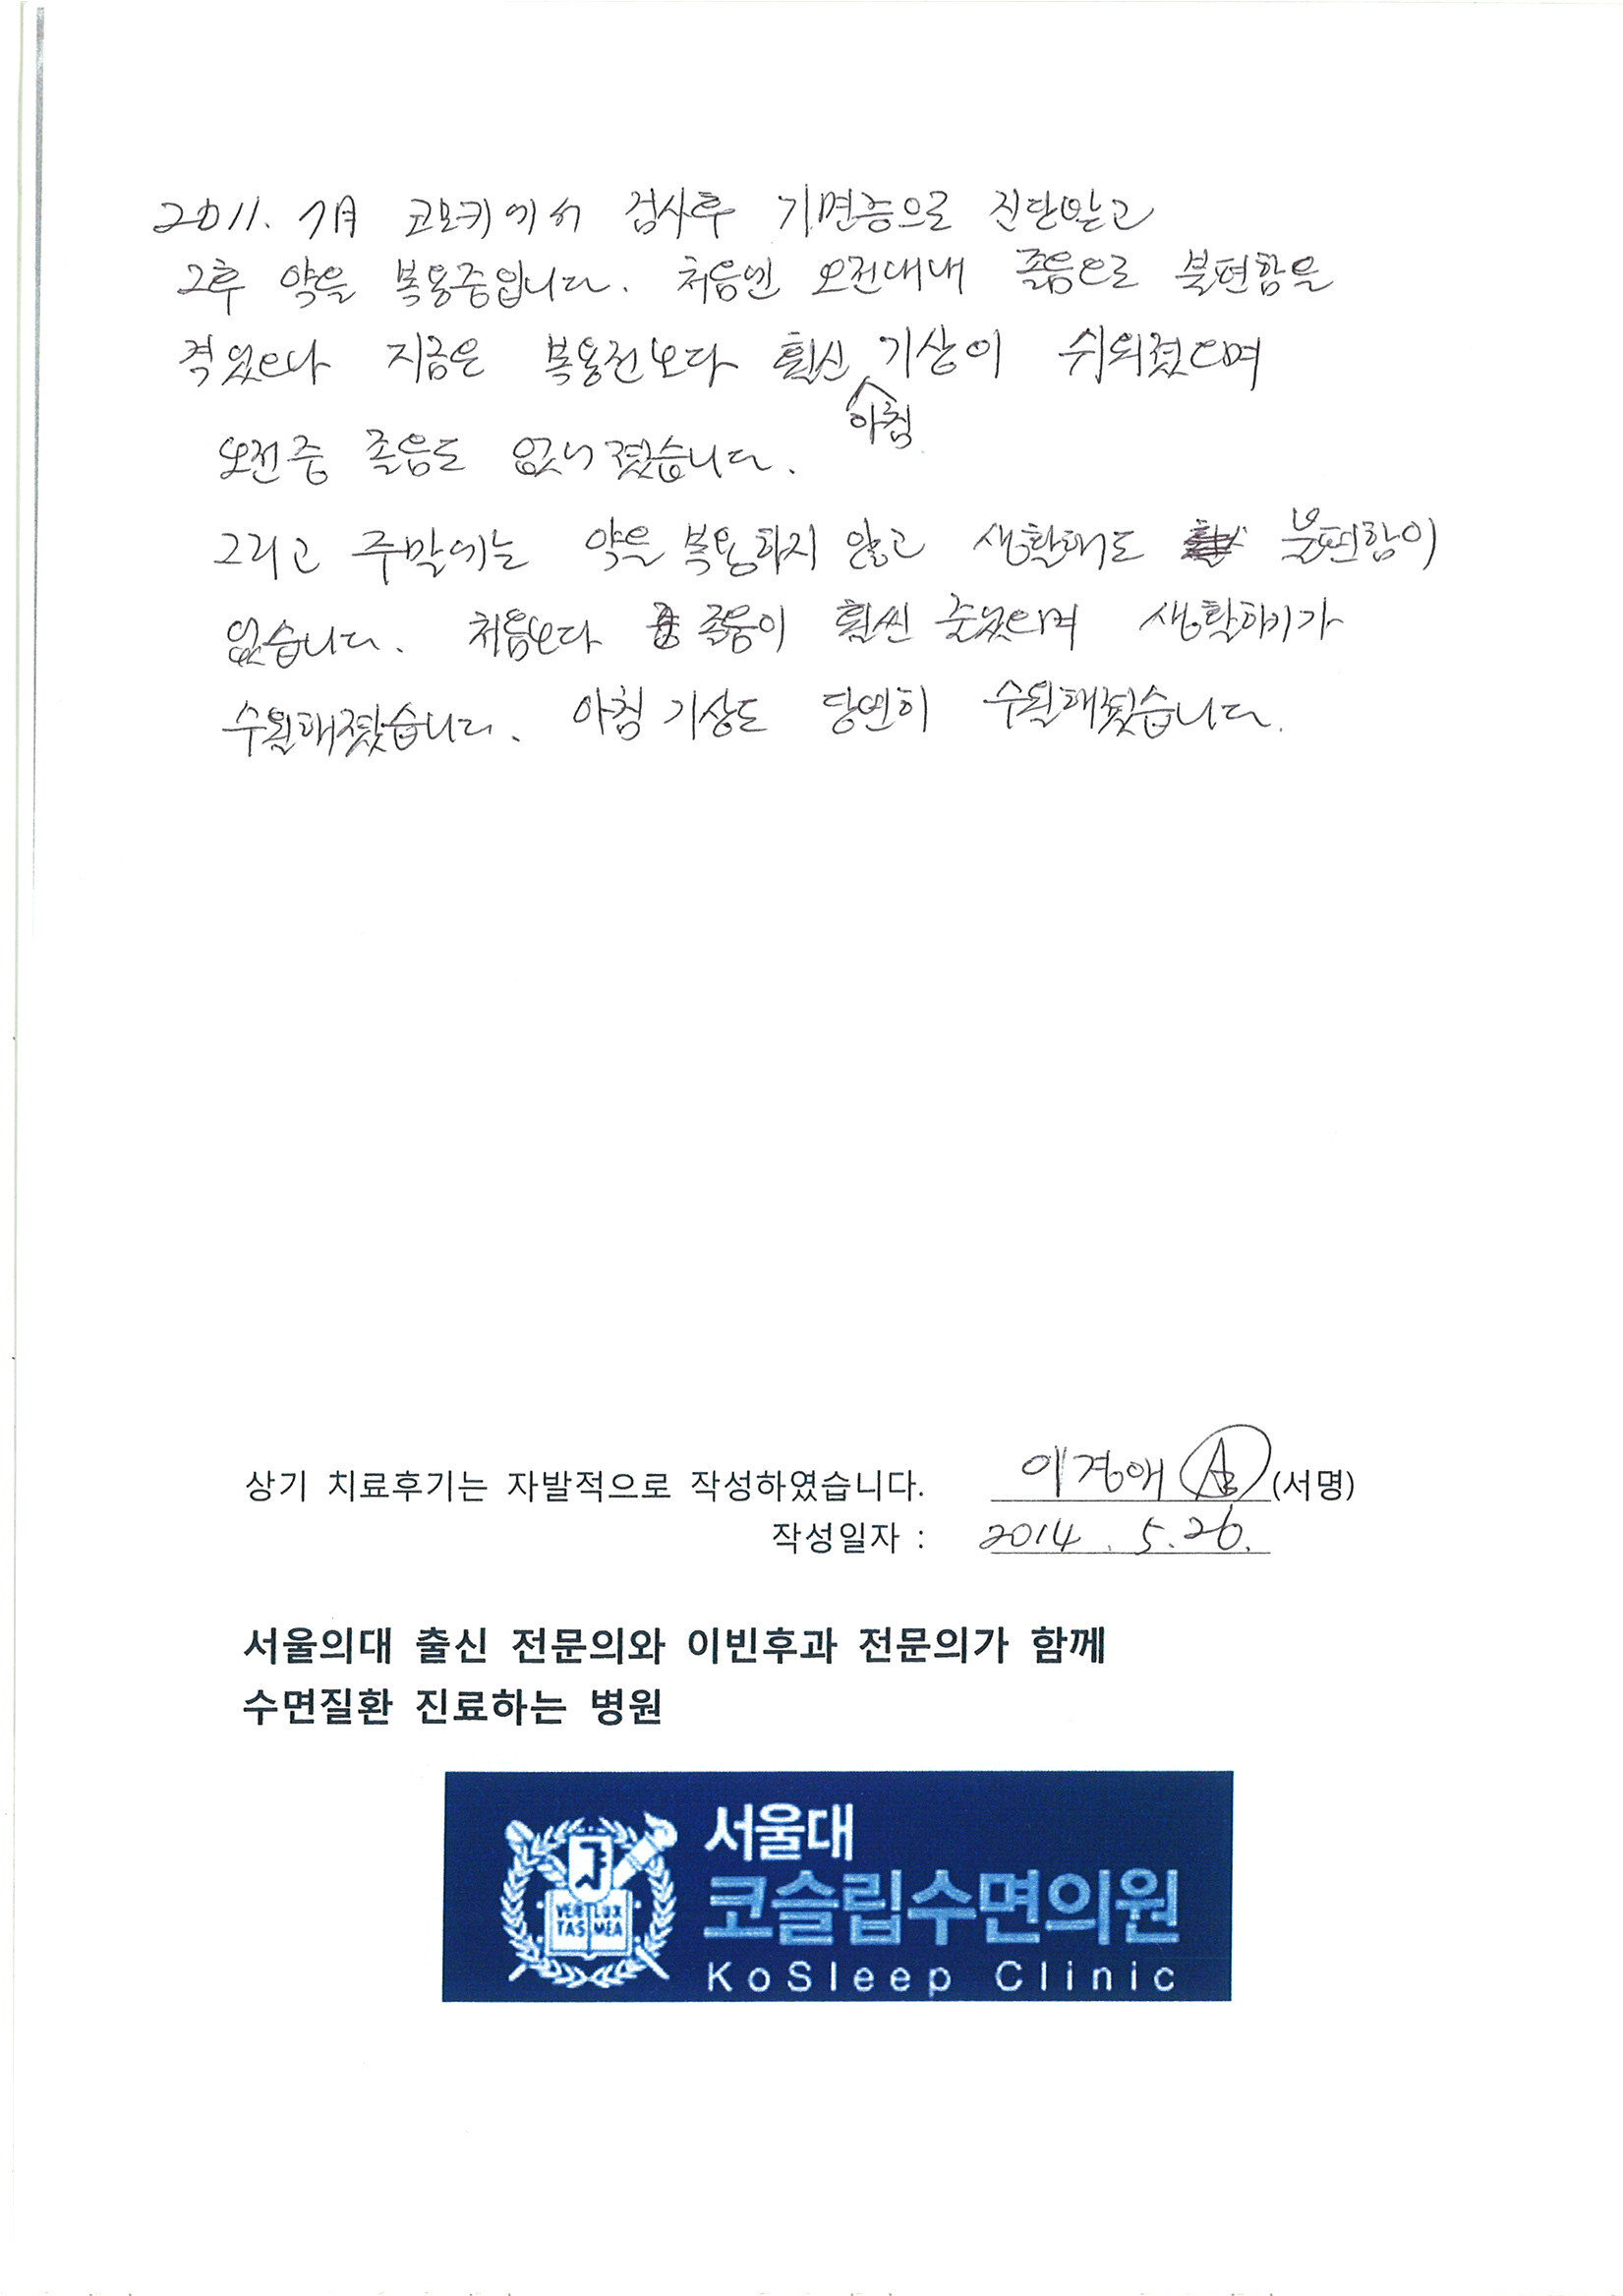 2011. 7月 코모키에서 검사후 기면증으로 진단받고
그후 약을 복용중입니다. 처음엔 오전대내 졸음으로 불편함을
격었으나 지금은 복용전보다 훨신 아침 기상이 쉬워졌으며
오전중 졸음도 없어졌습니다.
그리고 주말에는 약을 복용하지 않고 생활해도 불편함이
없습니다. 처음보다 졸음이 훨씬 줄었으며 생활하기가
수월해졌습니다. 아침 기상도 당연히 수월해졌습니다.
상기 치료후기는 자발적으로 작성하였습니다. 이경애 (서명)
작성일자 : 2014. 5. 26.
서울의대 출신 전문의와 이빈후과 전문의가 함께
수면질환 진료하는 병원
서울대
코슬립수면의원
KoSleep Clinic
VERI LUX
TAS MEA